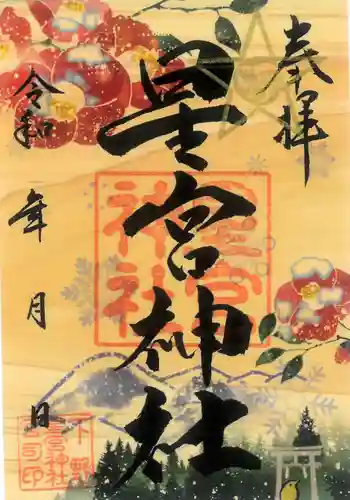 奉拝
星宮神社
星宮
神社
令和
年
月
日
下野
星宮神社
宮司印